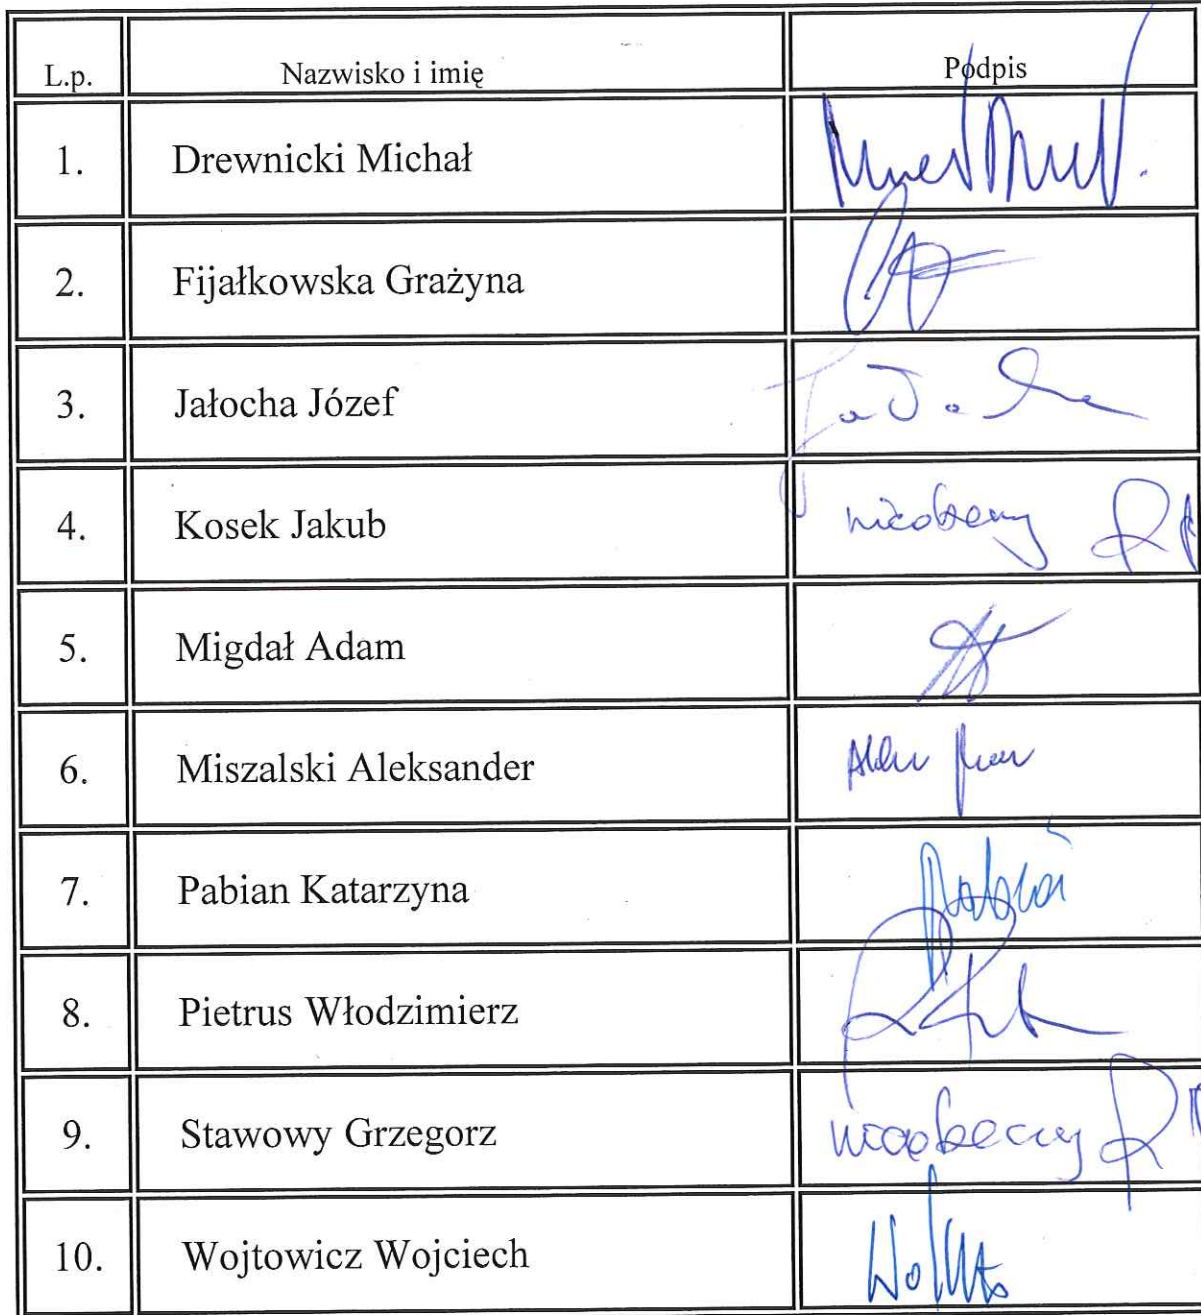 L.p. Nazwisko i imię Podpis
1. Drewnicki Michał
2. Fijałkowska Grażyna
3. Jałocha Józef
4. Kosek Jakub nieobecny
5. Migdał Adam
6. Miszalski Aleksander
7. Pabian Katarzyna
8. Pietrus Włodzimierz
9. Stawowy Grzegorz nieobecny
10. Wojtowicz Wojciech